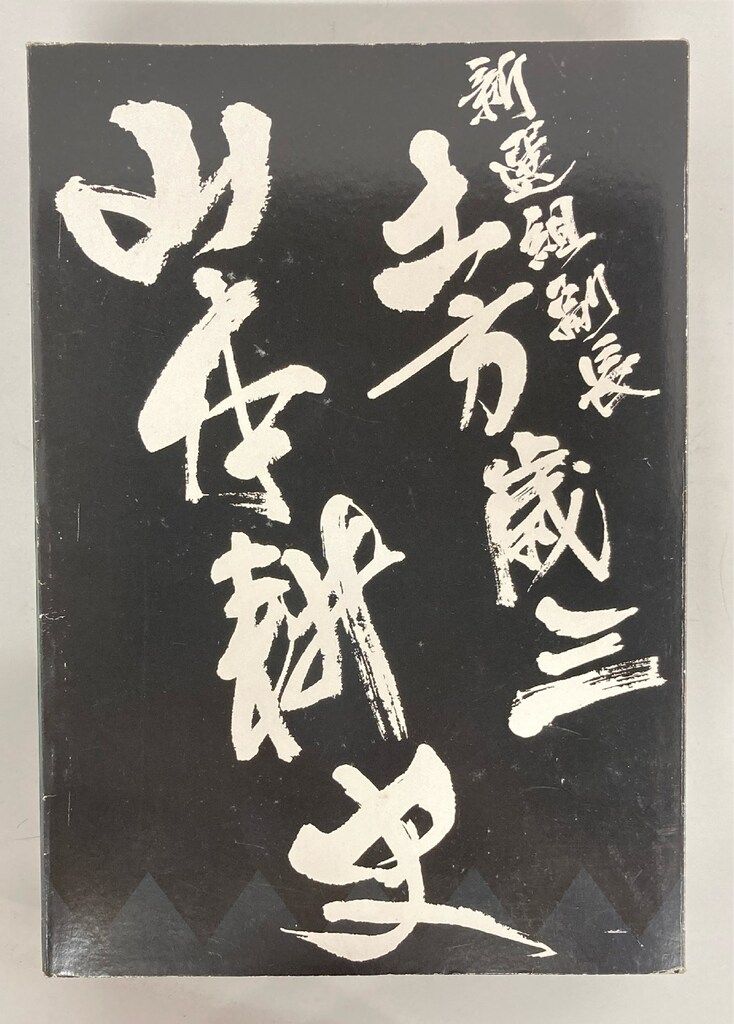 新選組副長
土方歳三
山本耕史